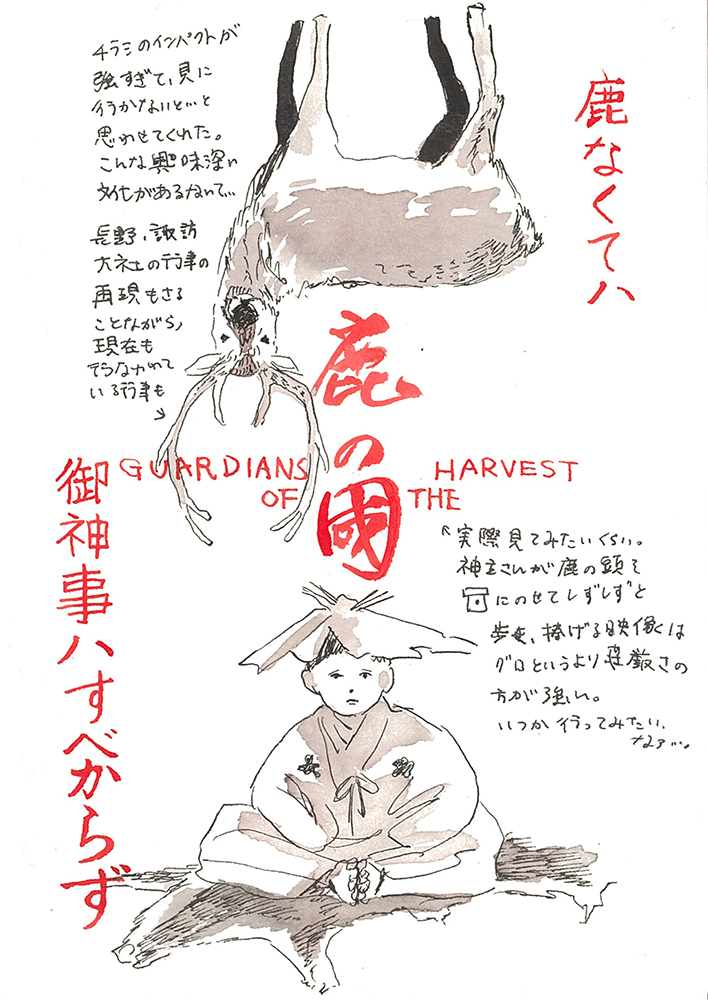 鹿なくてハ
御神事ハすべからず
鹿の國
GUARDIANS HARVEST
OF THE
チラシのインパクトが
強すぎて、見に
行かないと…と
思わせてくれた。
こんな興味深い
文化があるなんて…
長野、諏訪
大社の行事の
再現もさる
ことながら、
現在も
行なわれて
いる行事も
実際見てみたいくらい。
神主さんが鹿の頭を
にのせてしずしずと
歩き、捧げる映像は
グロというより荘厳さの
方が強い。
いつか行ってみたい
なァ…。